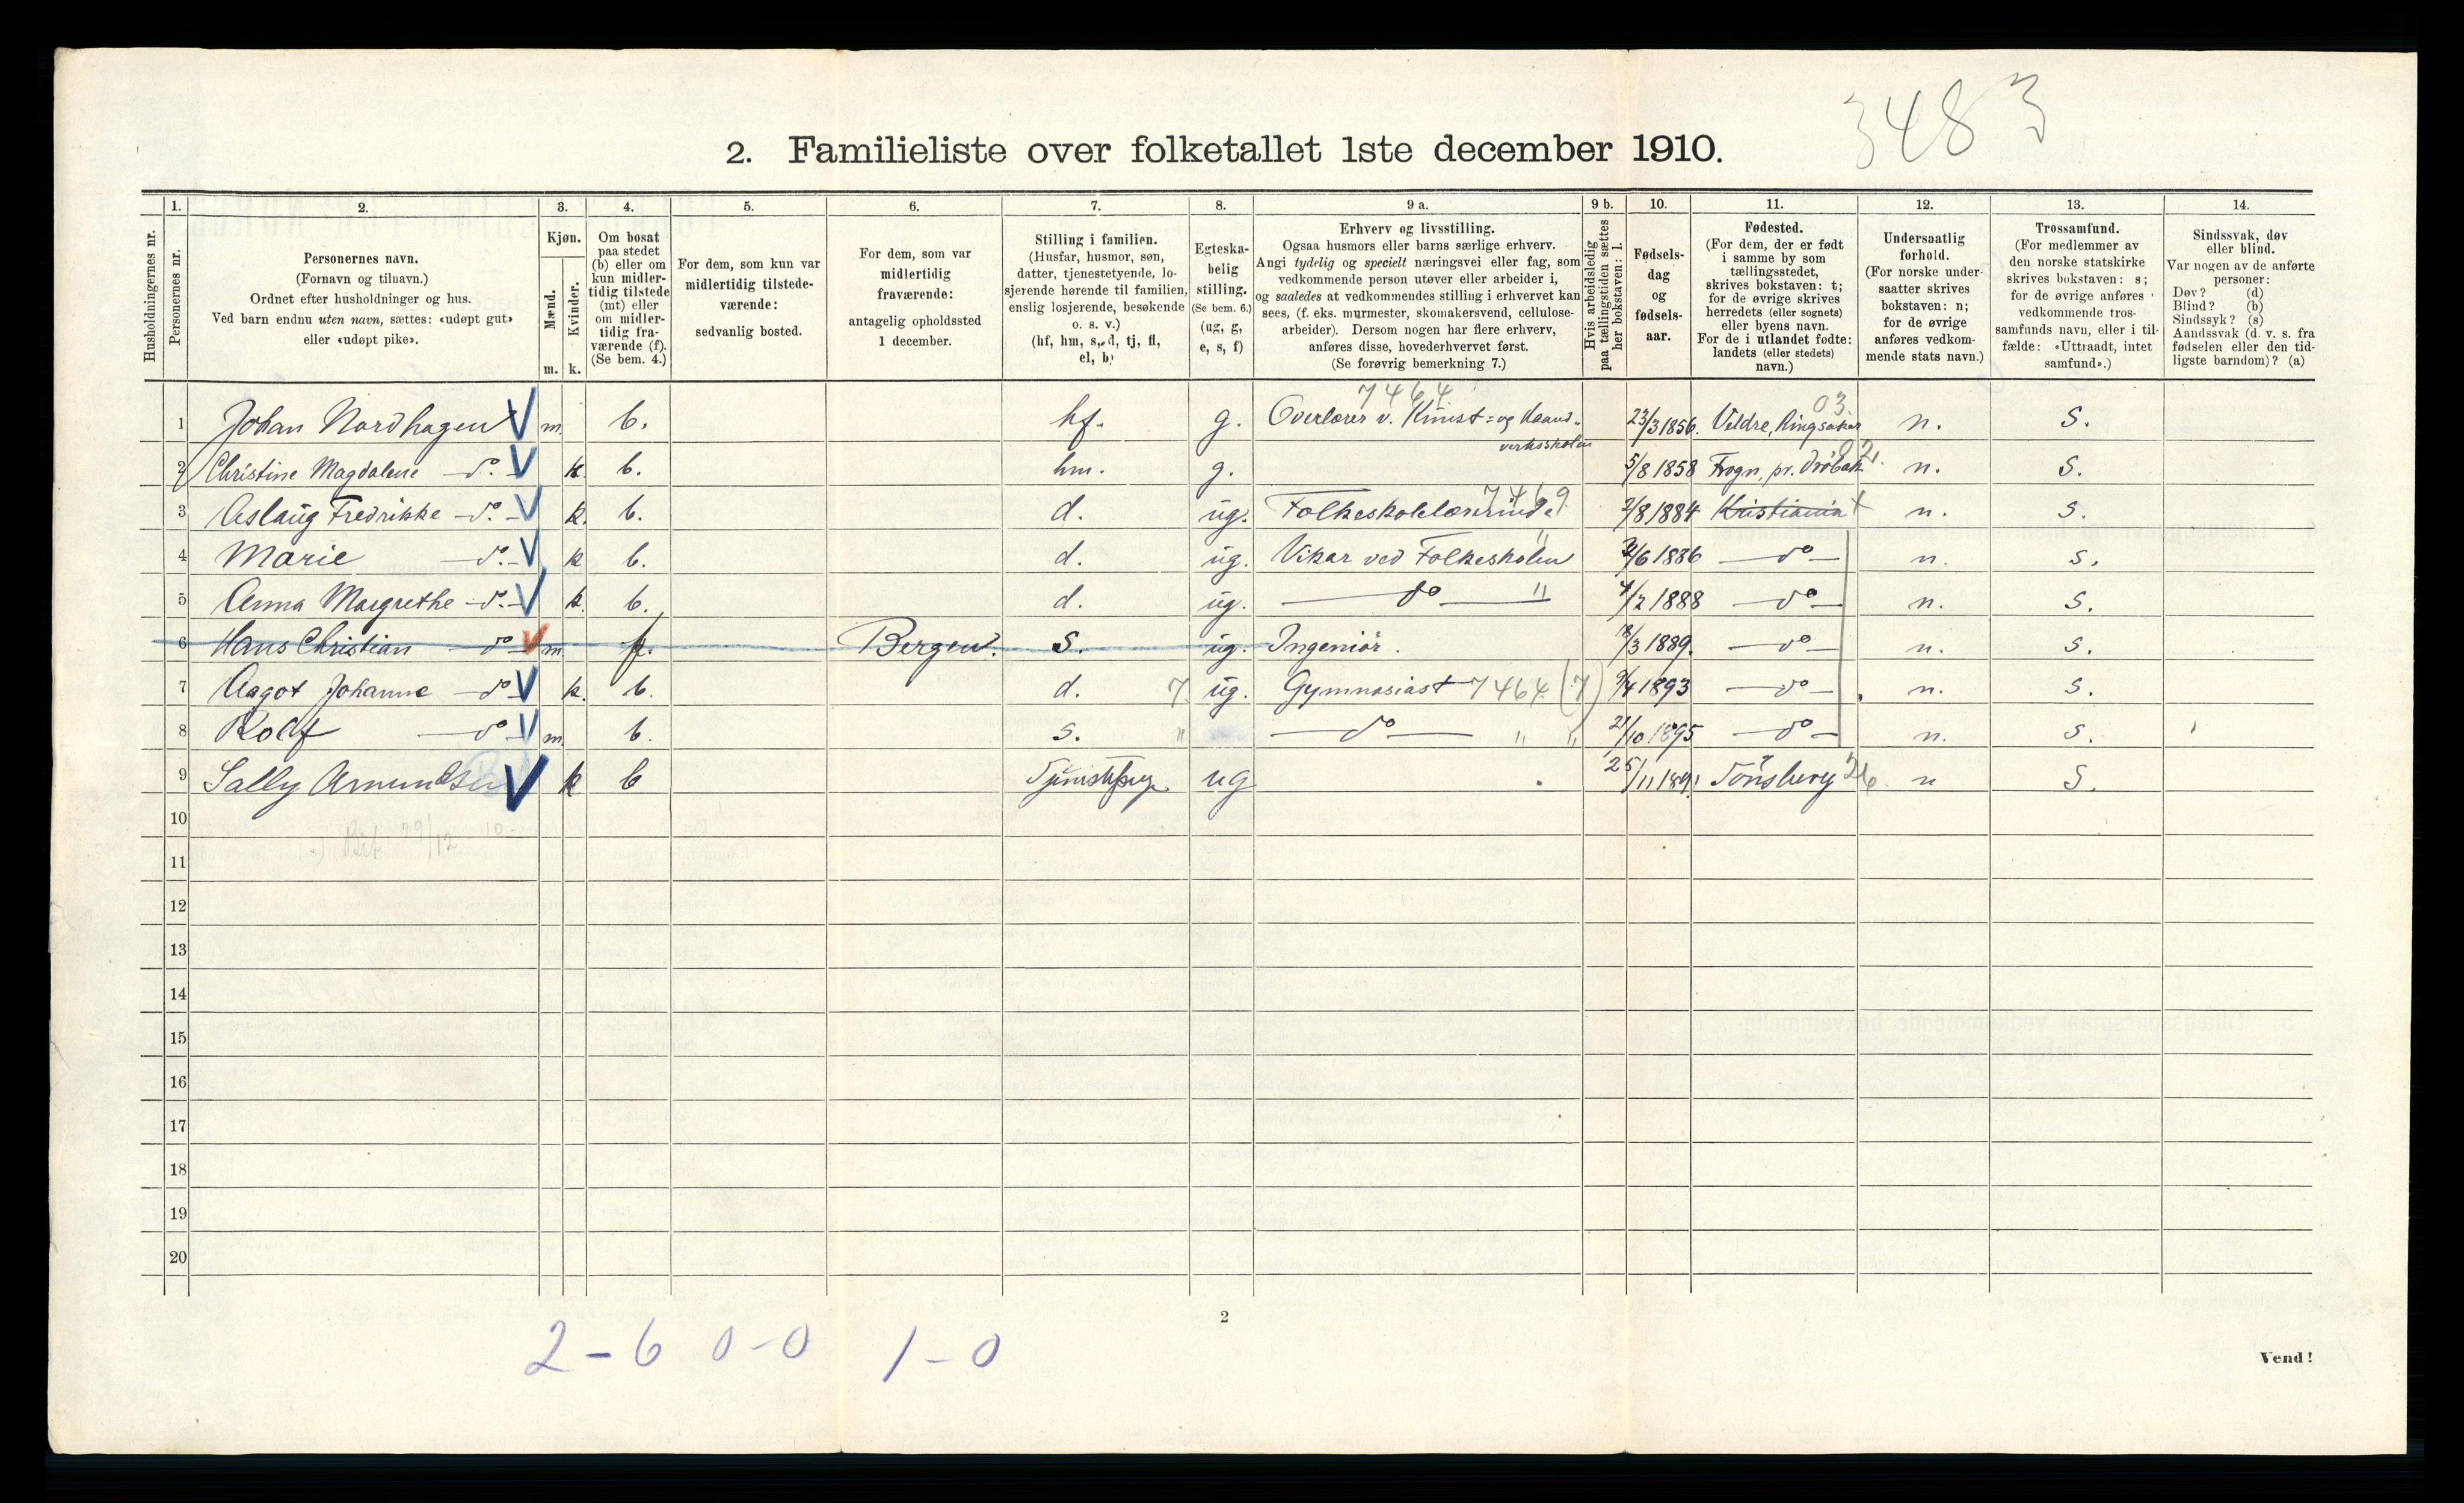 3483
2. Familieliste over folketallet 1ste december 1910.
Husholdningernes nr.
1.
Personernes nr.
2.
Personernes navn.
(Fornavn og tilnavn.)
Ordnet efter husholdninger og hus.
Ved barn endnu uten navn, sættes: «udøpt gut»
eller «udøpt pike».
3.
Kjøn.
Mænd.
Kvinder.
m. k.
4.
Om bosat
paa stedet
(b) eller om
kun midler-
tidig tilstede
(mt) eller
om midler-
tidig fra-
værende (f).
(Se bem. 4.)
5.
For dem, som kun var
midlertidig tilstede-
værende:
sedvanlig bosted.
6.
For dem, som var
midlertidig
fraværende:
antagelig opholdssted
1 december.
7.
Stilling i familien.
(Husfar, husmor, søn,
datter, tjenestetyende, lo-
sjerende hørende til familien,
enslig losjerende, besøkende
o. s. v.)
(hf, hm, s, d, tj, fl,
el, b)
8.
Egteska-
belig
stilling.
(Se bem. 6.)
(ug, g,
e, s, f)
9 a.
Erhverv og livsstilling.
Ogsaa husmors eller barns særlige erhverv.
Angi tydelig og specielt næringsvei eller fag, som
vedkommende person utøver eller arbeider i,
og saaledes at vedkommendes stilling i erhvervet kan
sees, (f. eks. murmester, skomakersvend, cellulose-
arbeider). Dersom nogen har flere erhverv,
anføres disse, hovederhvervet først.
(Se forøvrig bemerkning 7.)
9 b.
Hvis arbeidsledig
paa tællingstiden sættes
her bokstaven: l.
10.
Fødsels-
dag
og
fødsels-
aar.
11.
Fødested.
(For dem, der er født
i samme by som
tællingsstedet,
skrives bokstaven: t;
for de øvrige skrives
herredets (eller sognets)
eller byens navn.
For de i utlandet fødte:
landets (eller stedets)
navn.)
12.
Undersaatlig
forhold.
(For norske under-
saatter skrives
bokstaven: n;
for de øvrige
anføres vedkom-
mende stats navn.)
13.
Trossamfund.
(For medlemmer av
den norske statskirke
skrives bokstaven: s;
for de øvrige anføres
vedkommende tros-
samfunds navn, eller i til-
fælde: «Uttraadt, intet
samfund».)
14.
Sindssvak, døv
eller blind.
Var nogen av de anførte
personer:
Døv? (d)
Blind? (b)
Sindssyk? (s)
Aandssvak (d. v. s. fra
fødselen eller den tid-
ligste barndom)? (a)
7464 03.
1 Johan Nordhagen V m. b. hf. g. Overlærer v. Kunst= og Haand- 23/3 1856. Veldre, Ringsaker n. S.
verksskolen
2 Christine Magdalene do. V k. b. hm. g. 5/8 1858 Frogn, pr. Drøbak 02. n. S.
3 Aslaug Fredrikke do. V k. b. d. ug. Folkeskolelærerinde 7469 2/8 1884 Kristiania t n. S.
4 Marie do. V k b. d. ug. Vikar ved Folkeskolen " /6 1886 do n. S.
5 Anna Margrethe do. V k. b. d. ug. do " 4/2 1888 do n. S.
6 Hans Christian do V m f. Bergen. S. ug. Ingeniør. 18/3 1889. do n. S.
7 Aagot Johanne do V k. b. d. 7 ug. Gymnasiast 7464 (7) 9/4 1893 do n. S.
8 Rolf do V m. b. s. " do " " 21/10 1895 do n. S.
9 Sally Amundsen V k b ug 25/11 1891 Tönsberg 26 n S.
10
11
12
13
14
15
16
17
18
19
20
2
2-6 0-0 1-0
Vend!